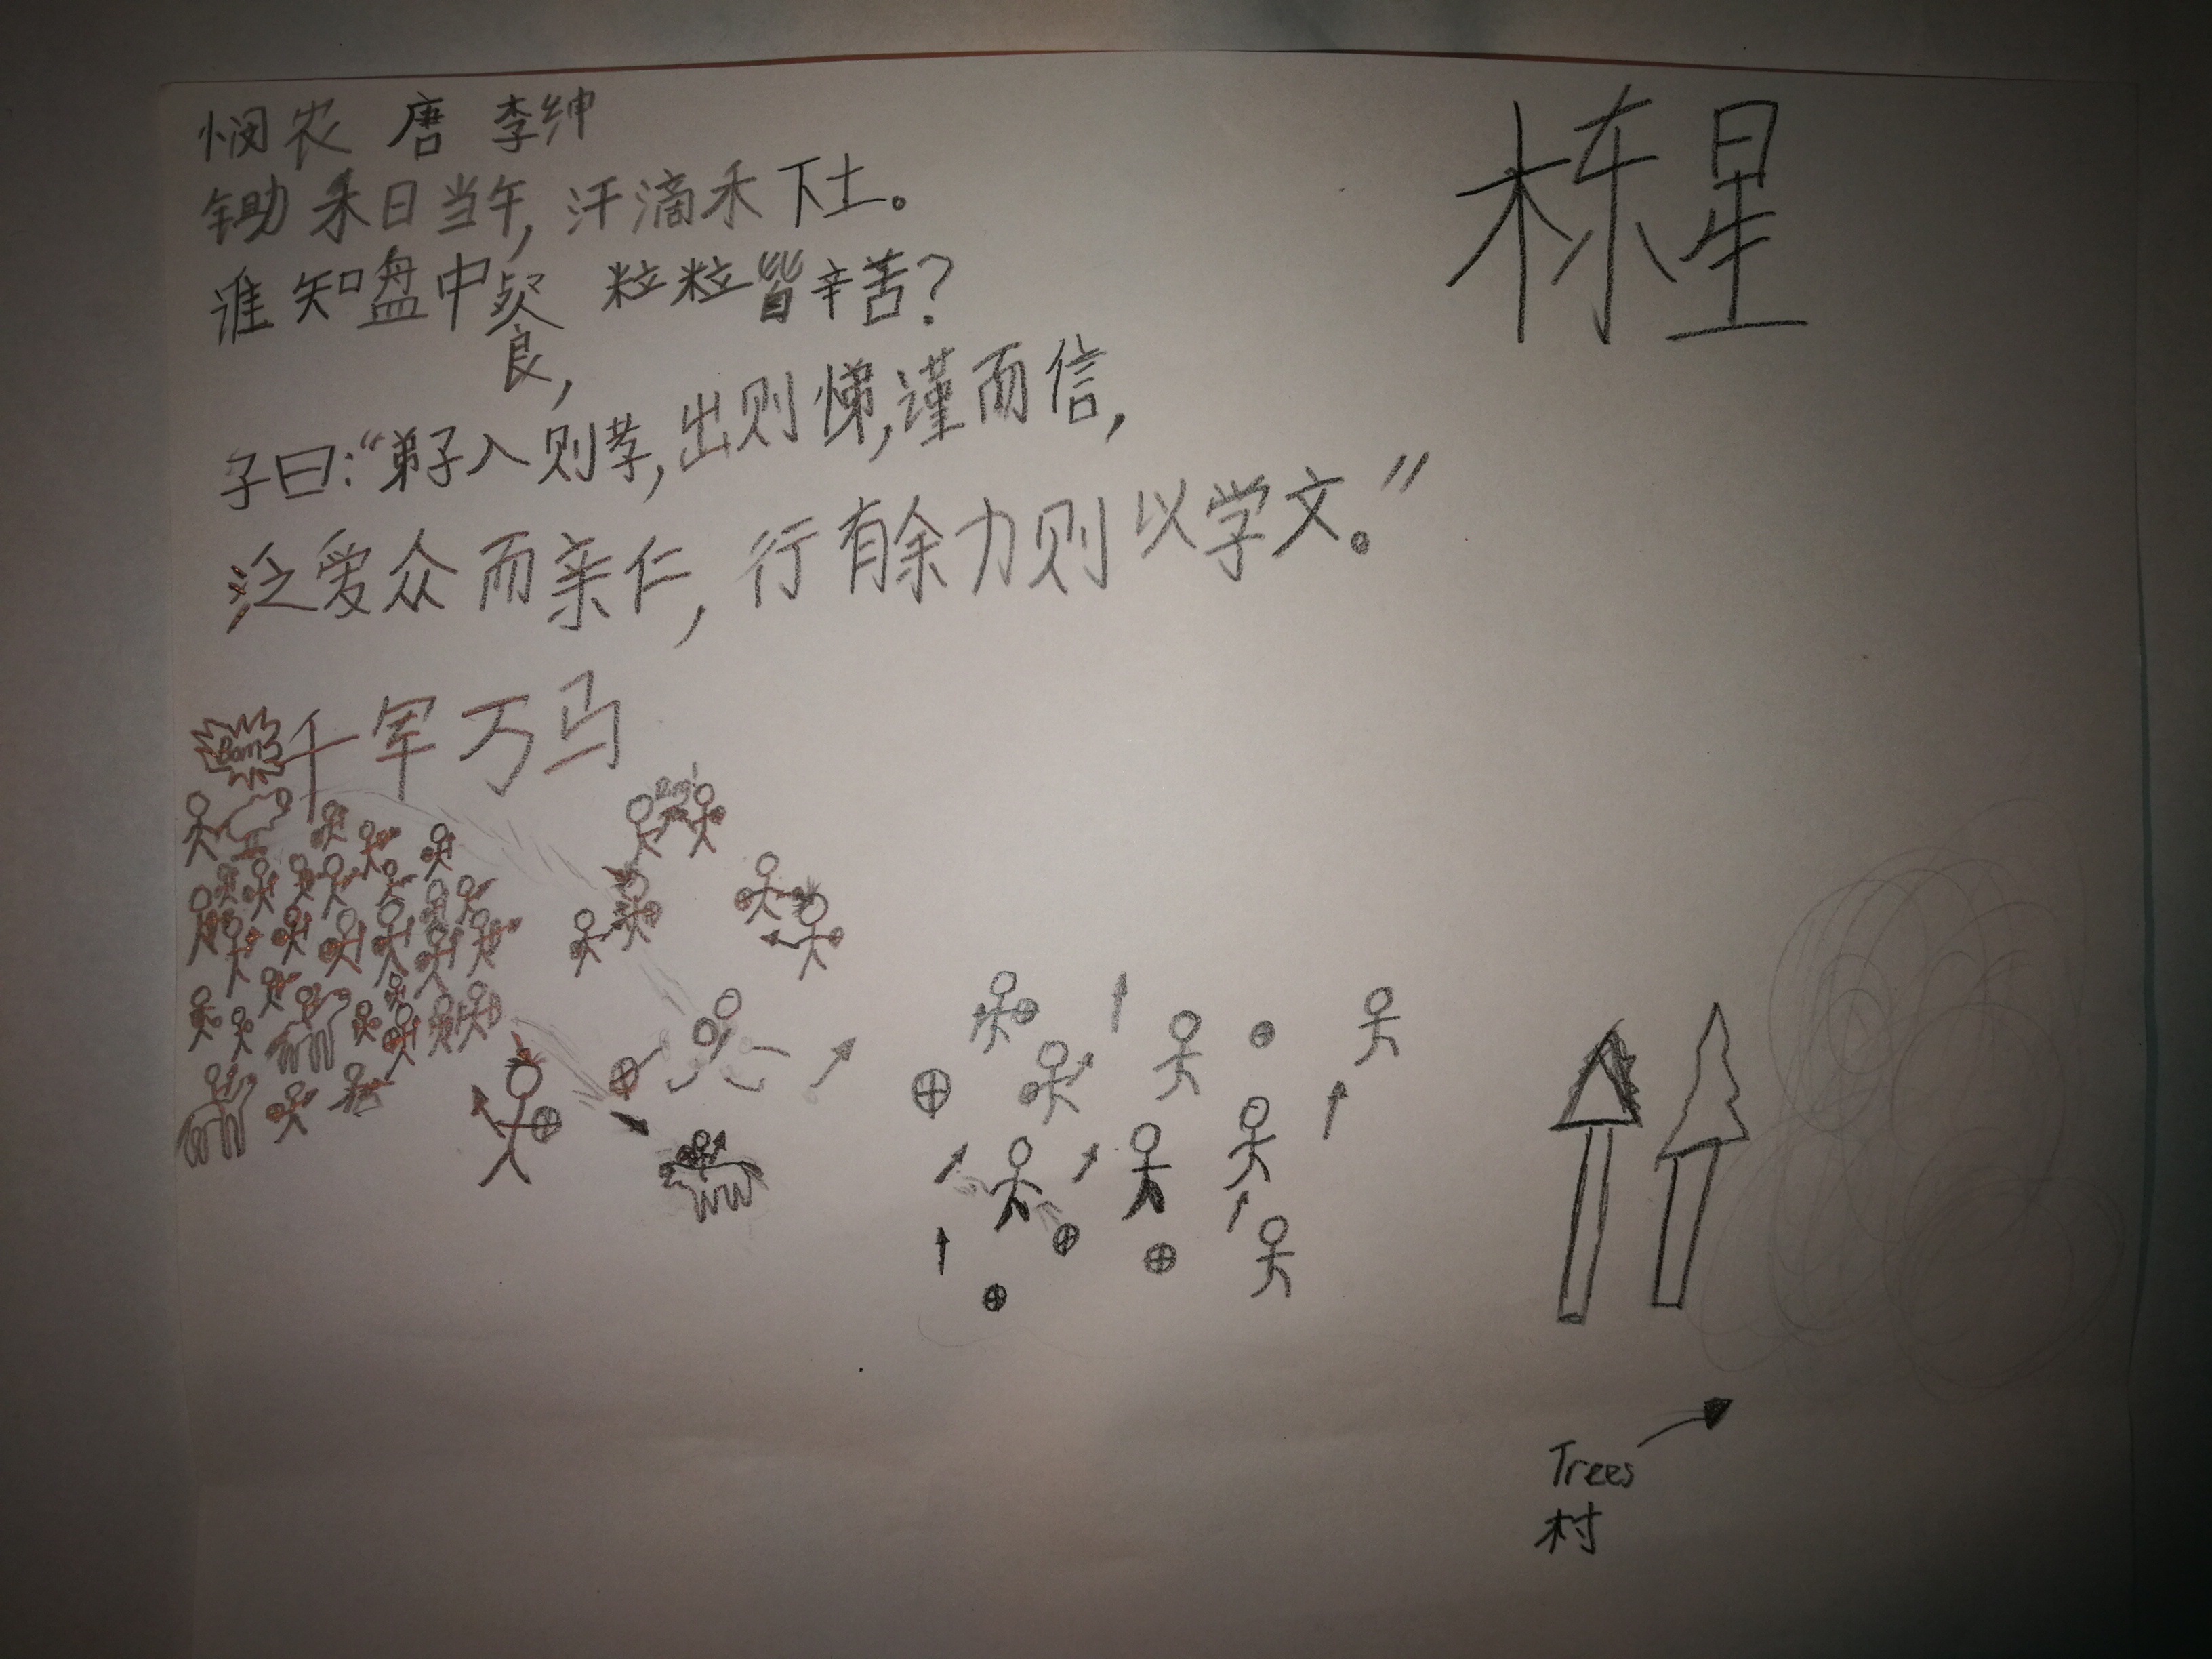 悯农 唐 李绅
锄禾日当午,汗滴禾下土。
谁知盘中餐,粒粒皆辛苦?
子曰:“弟子入则孝,出则悌,谨而信,
泛爱众而亲仁,行有余力则以学文。”
栋星
Bam
千军万马
Trees
村